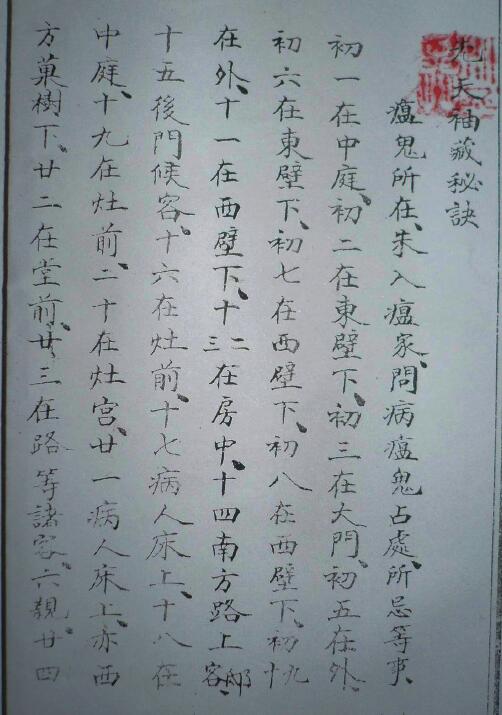 先天袖藏秘訣
瘟鬼所在、未入瘟家、問病瘟鬼占處、所忌等事、
初一在中庭、初二在東壁下、初三在大門、初五在外、
初六在東壁下、初七在西壁下、初八在西壁下、初九十
在外、十一在西壁下、十二三在房中、十四南方路上客邸、
十五後門候客、十六在灶前、十七病人床上、十八在
中庭、十九在灶前、二十在灶宮、廿一病人床上、亦西
方菓樹下、廿二在堂前、廿三在路等諸客、六親、廿四